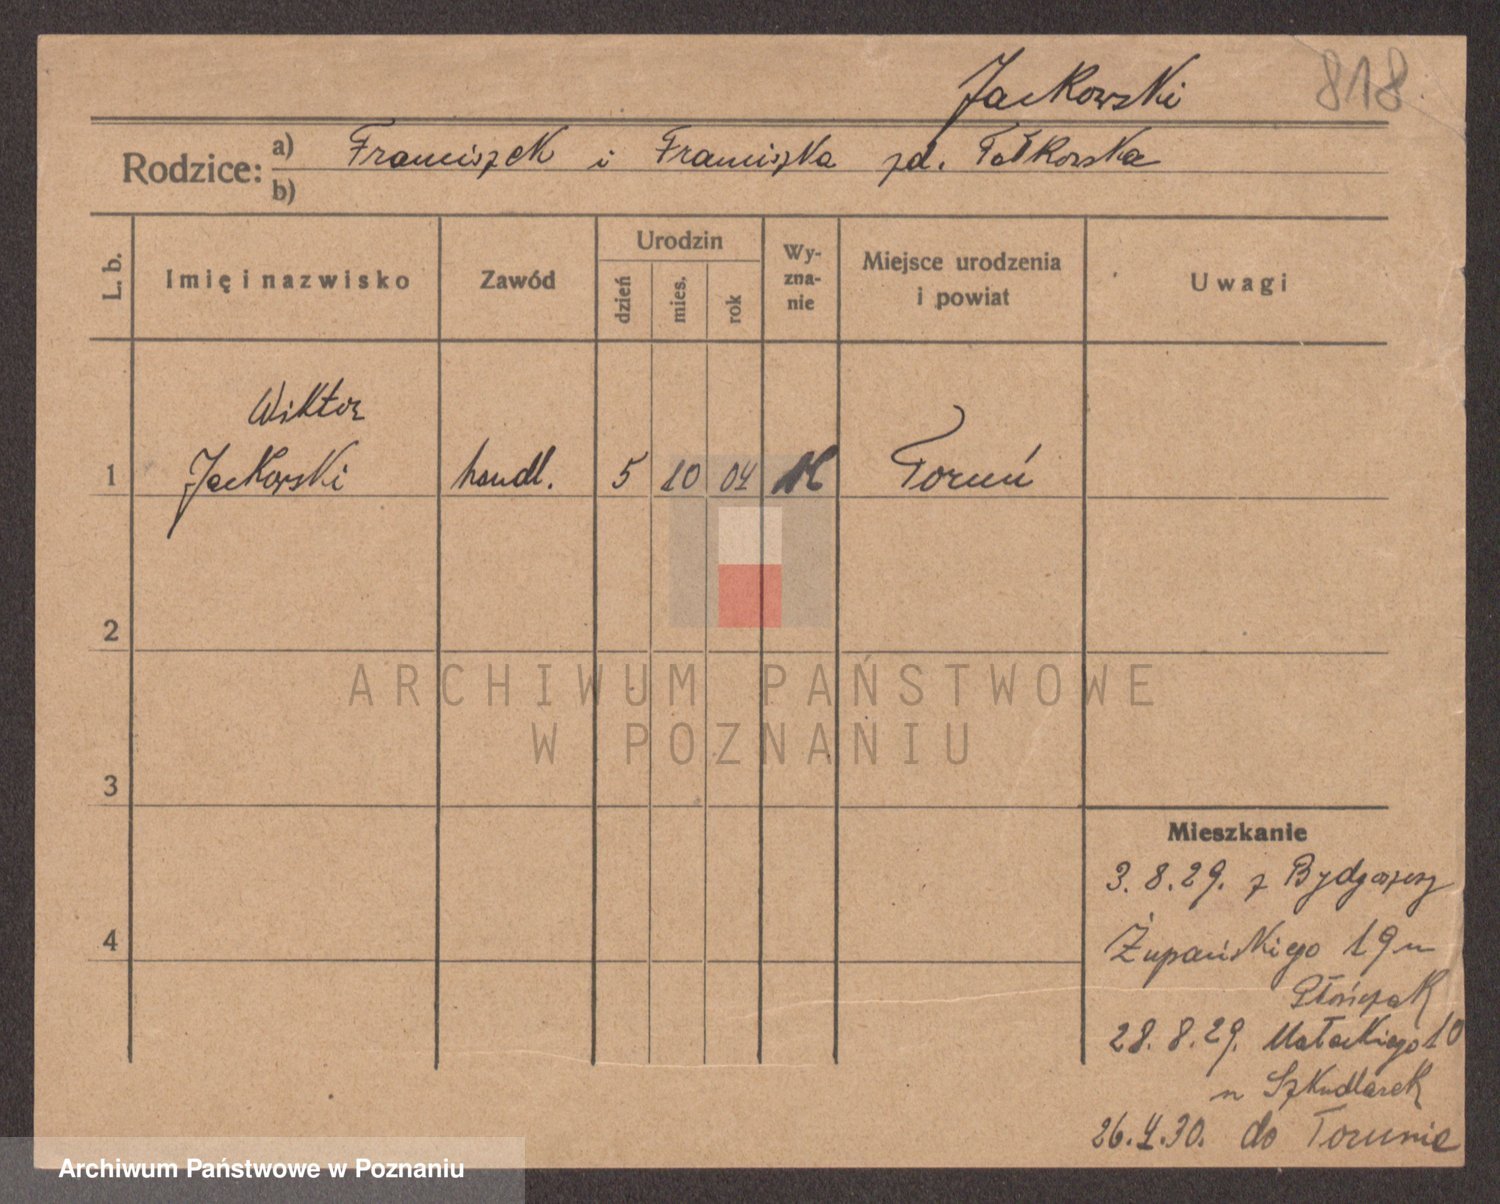 Jackowski 818
Rodzice: a) Franciszek i Franciszka zd. Fałkowska
b)
L. b. Imię i nazwisko Zawód Urodzin dzień mies. rok Wy-zna-nie Miejsce urodzenia i powiat Uwagi
Wiktor
1 Jackowski handl. 5 10 04 K Toruń
2
ARCHIWUM PAŃSTWOWE
W POZNANIU
3
Mieszkanie
3. 8. 29. z Bydgoszczy
4 Żupańskiego 19 u
Płończak
28. 8. 29. Małeckiego 10
u Szkudlarek
26. 4. 30. do Torunia
Archiwum Państwowe w Poznaniu